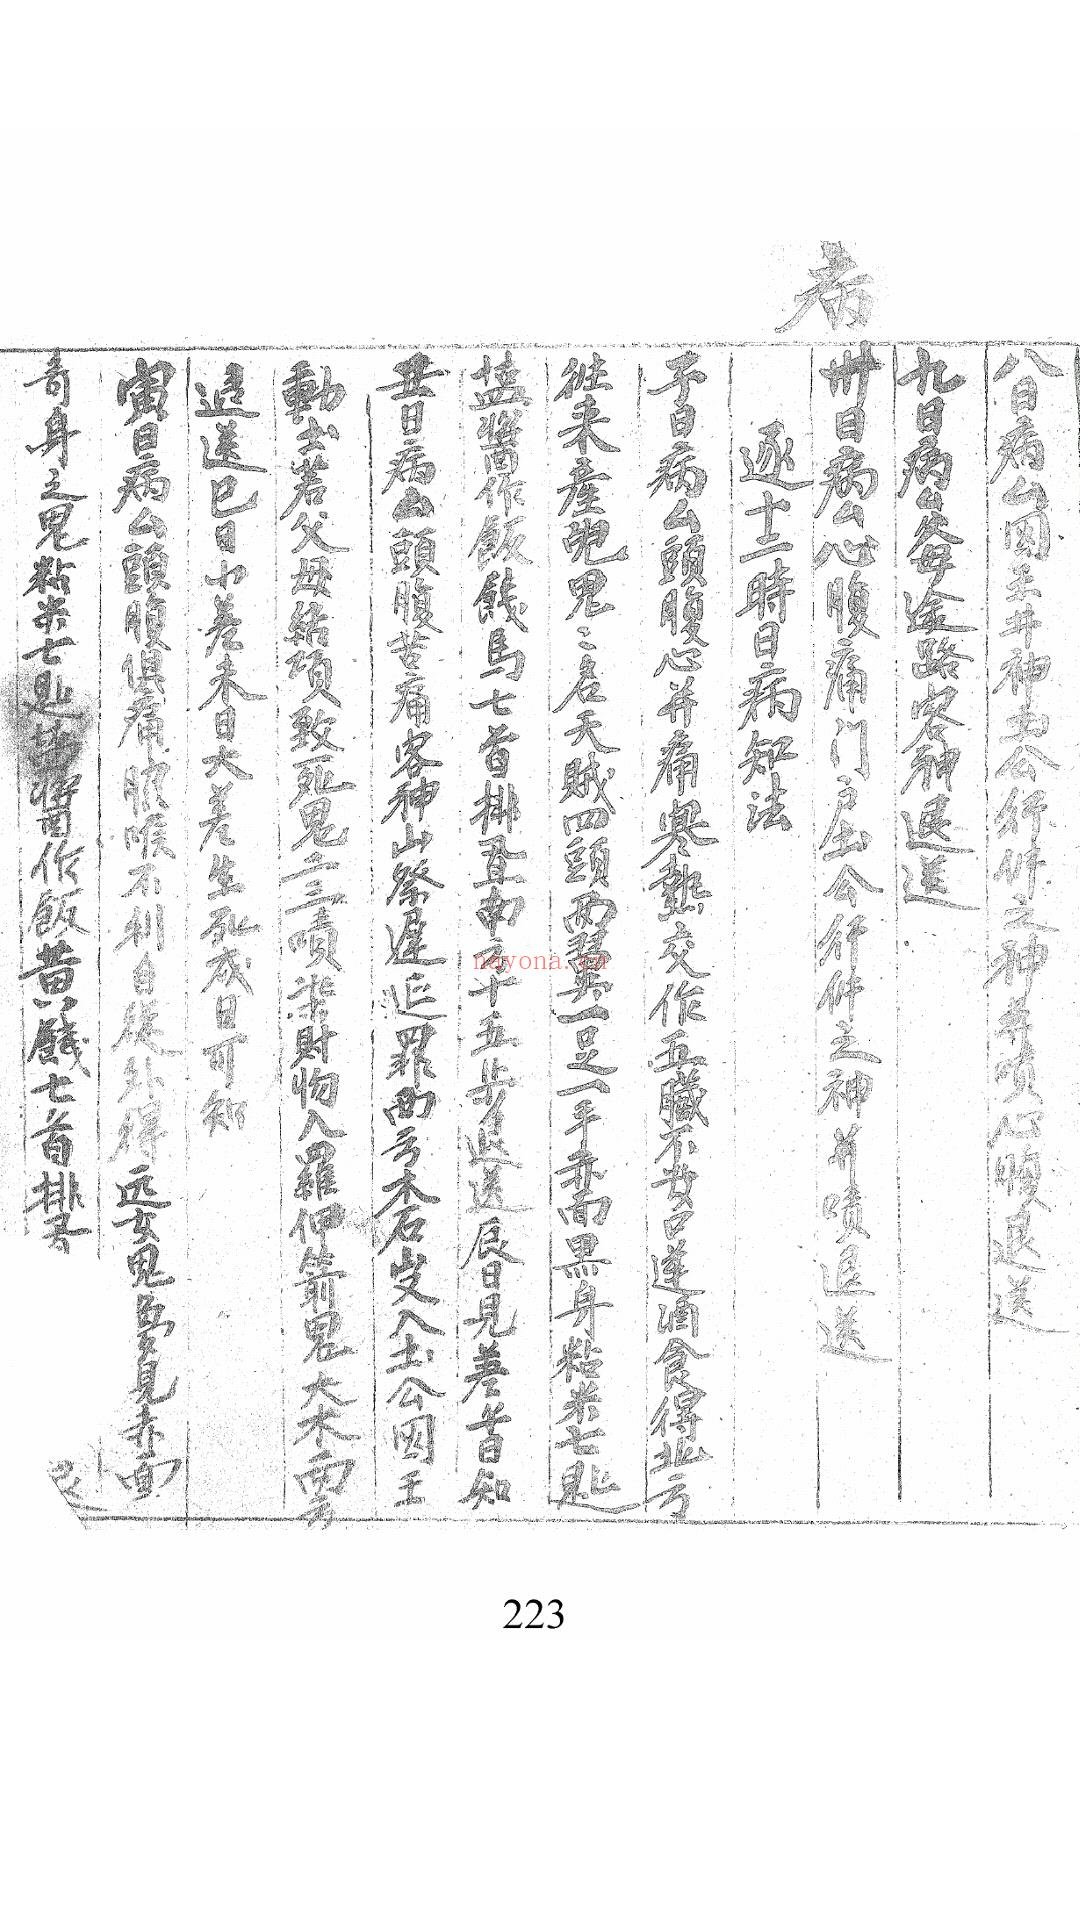 病
八日病厶因王井神土公行件之神并嘖心腹退送
九日病厶爷每途路客神退送
卅日病厶心腹痛门户土公行件之神并嘖退送
逐十二時日病知法
子日病厶頭腹心并痛寒熱交作五臟不安口逆酒食得北方
往来產跑鬼〻名天賊四頭两翼一足一手赤面黒身粘米七匙
塩醬作飯餞馬七首排丑南方十五步退送辰日見差酉日知
丑日病厶頭腹苦痛客神山祭遲延罪西方木石叟入土公因王
動土若父母結項致死鬼二三嘖柒財物入羅伸箭鬼大木両方
退送巳日小差未日大差生死戌日可知
寅日病厶頭腹俱痛咽喉不利自從外得远女鬼夢見赤面
奇身之鬼粘米七匙塩醬作飯黄餞七首排
退
nayona.cn
223